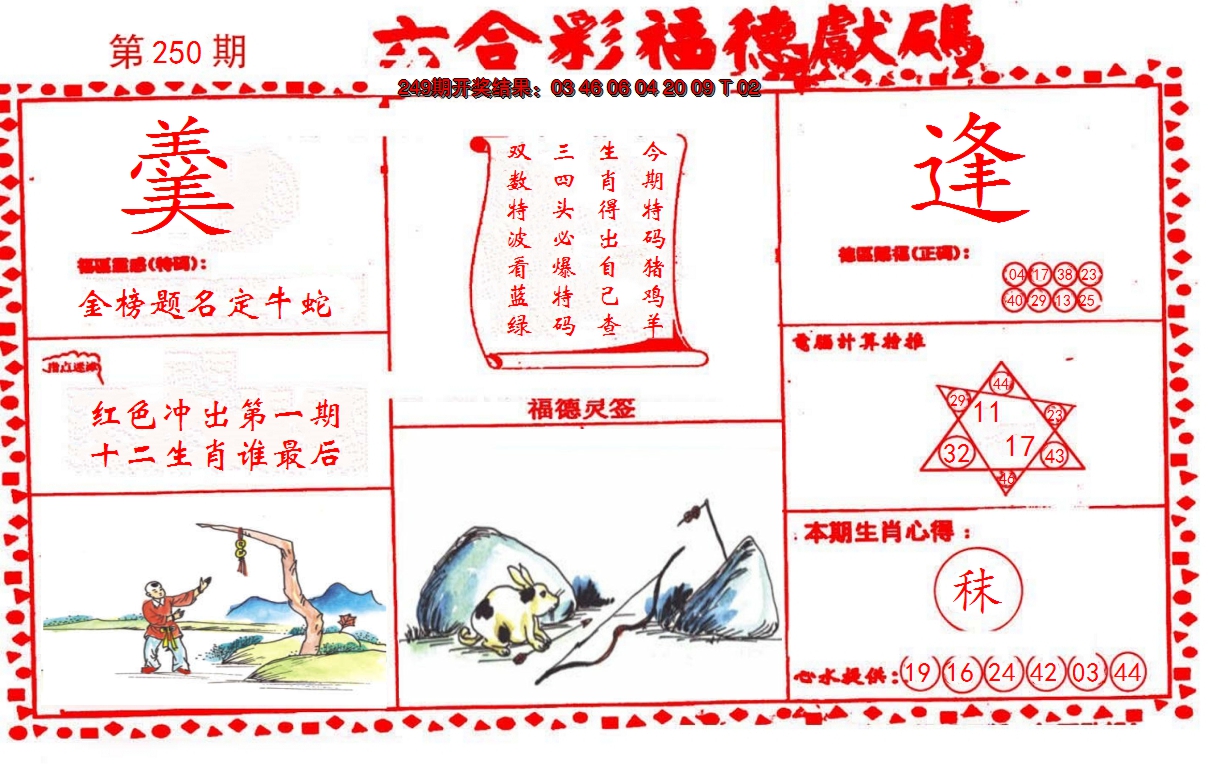 第250期
六合彩福德獻碼
249期开奖结果：03 46 06 04 20 09 T 02
羹
福區靈感(特碼)：
金榜题名定牛蛇
指点迷津
红色冲出第一期
十二生肖谁最后
今期特码猪鸡羊
生肖得出自己查
三四头必爆特码
双数特波看蓝绿
福德灵签
逢
德區賜福(正碼)：
04 17 38 23
40 29 13 25
電腦計算拾推
44
29 11 23
32 17 43
46
本期生肖心得：
秣
心水提供：19 16 24 42 03 44